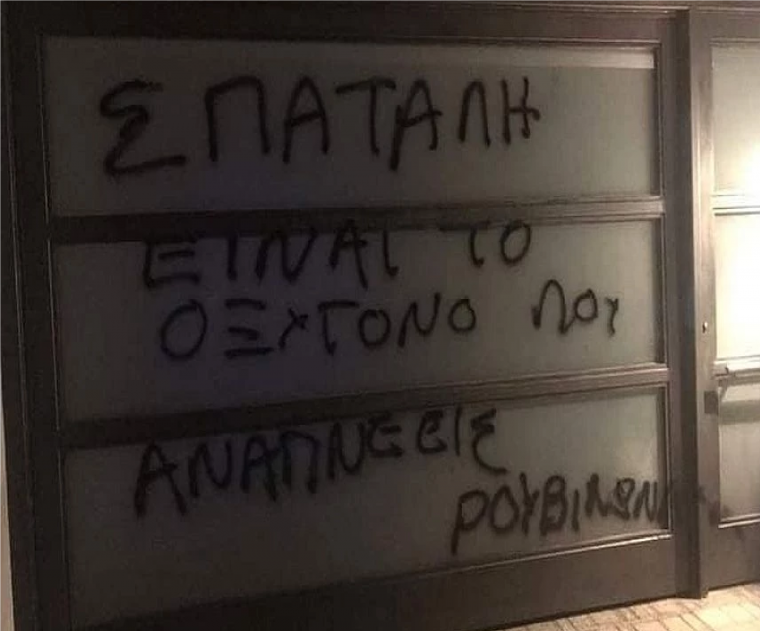 ΣΠΑΤΑΛΗ
ΕΙΝΑΙ ΤΟ
ΟΞΥΓΟΝΟ ΠΟΥ
ΑΝΑΠΝΕΕΙΣ
ΡΟΥΒΙΚΩΝ